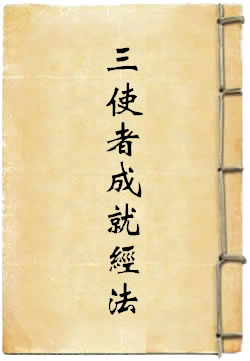 三使者成就經法